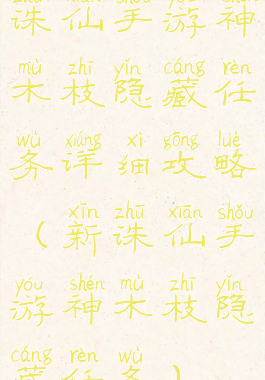 zhū xiān shǒu yóu shén
诛仙手游神
mù zhī yǐn cáng rèn
木枝隐藏任
wù xiáng xì gōng lüè
务详细攻略
xīn zhū xiān shǒu
（新诛仙手
yóu shén mù zhī yǐn
游神木枝隐
cáng rèn wù
藏任务）